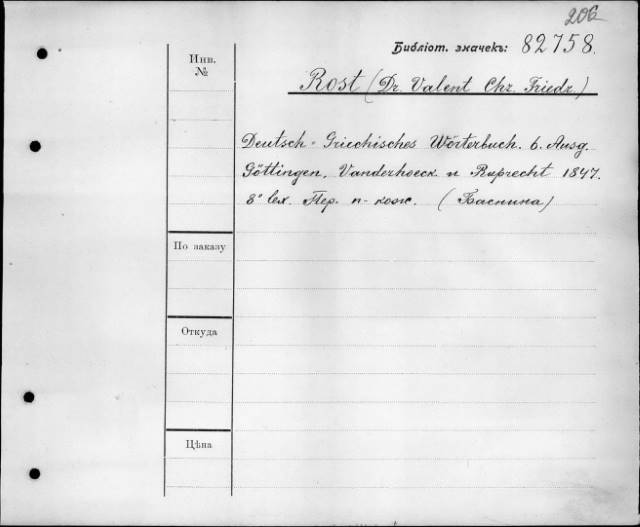 206
Библіот. значекъ: 82758.
Инв.
№
Rost (Dr. Valent Chr. Friedr.)
Deutsch-Griechisches Wörterbuch. 6. Ausg.
Göttingen, Vanderhoeck u Ruprecht 1847.
8° lex. Пер. п-кож. (Баснина)
По заказу
Откуда
Цѣна